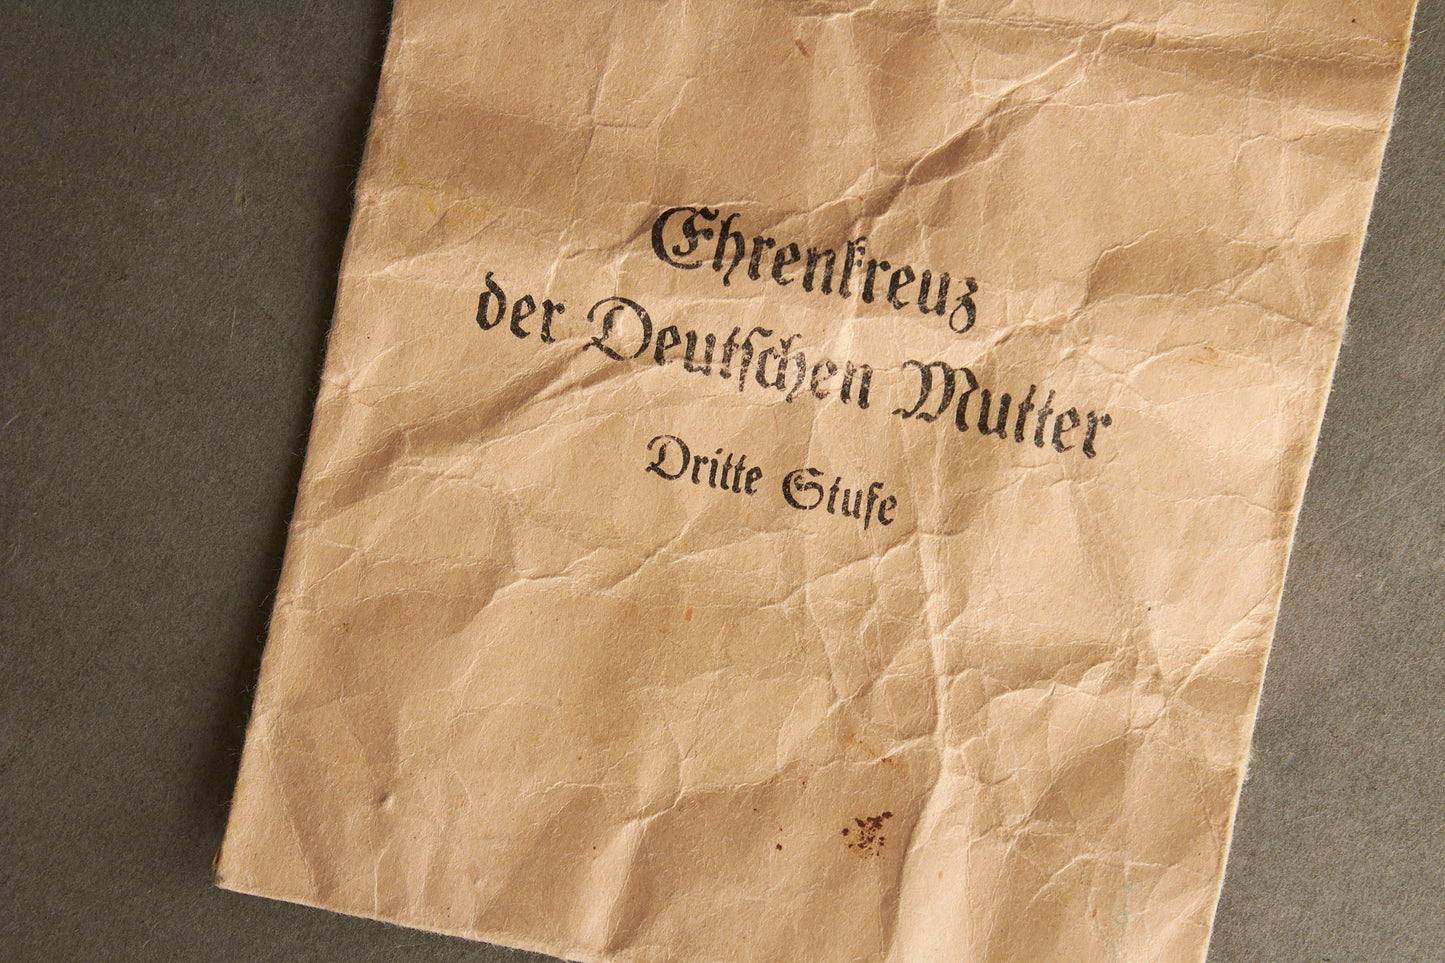 Ehrenkreuz
der Deutschen Mutter
Dritte Stufe